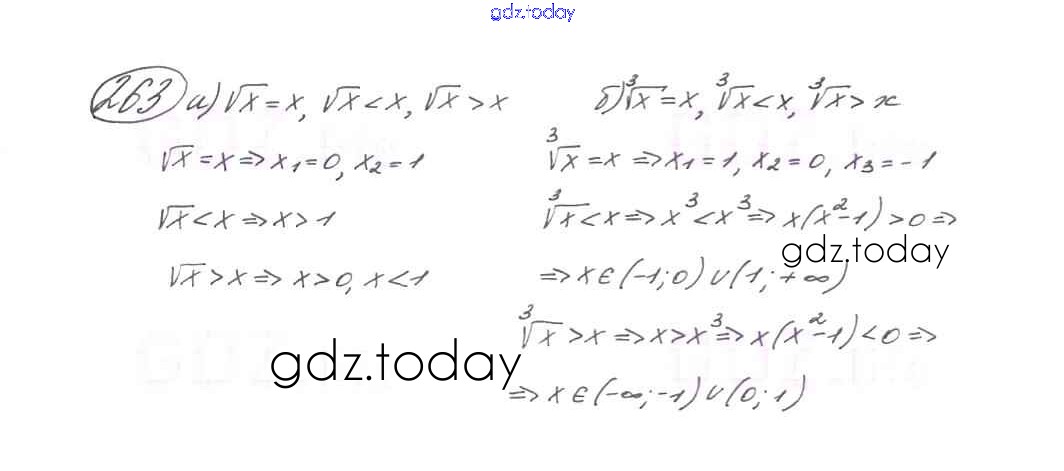 gdz.today
263 а) √x = x, √x < x, √x > x
√x = x ⇒ x₁ = 0, x₂ = 1
√x < x ⇒ x > 1
√x > x ⇒ x > 0, x < 1
б) ³√x = x, ³√x < x, ³√x > x
³√x = x ⇒ x₁ = 1, x₂ = 0, x₃ = -1
³√x < x ⇒ x³ < x³ ⇒ x(x² - 1) > 0 ⇒
gdz.today
⇒ x ∈ (-1; 0) ∪ (1; +∞)
³√x > x ⇒ x > x³ ⇒ x(x² - 1) < 0 ⇒
gdz.today
⇒ x ∈ (-∞; -1) ∪ (0; 1)